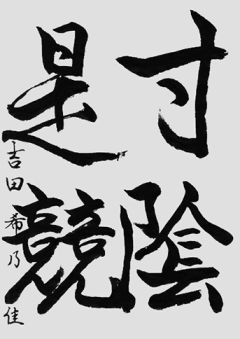 寸陰
是競
吉田希乃佳